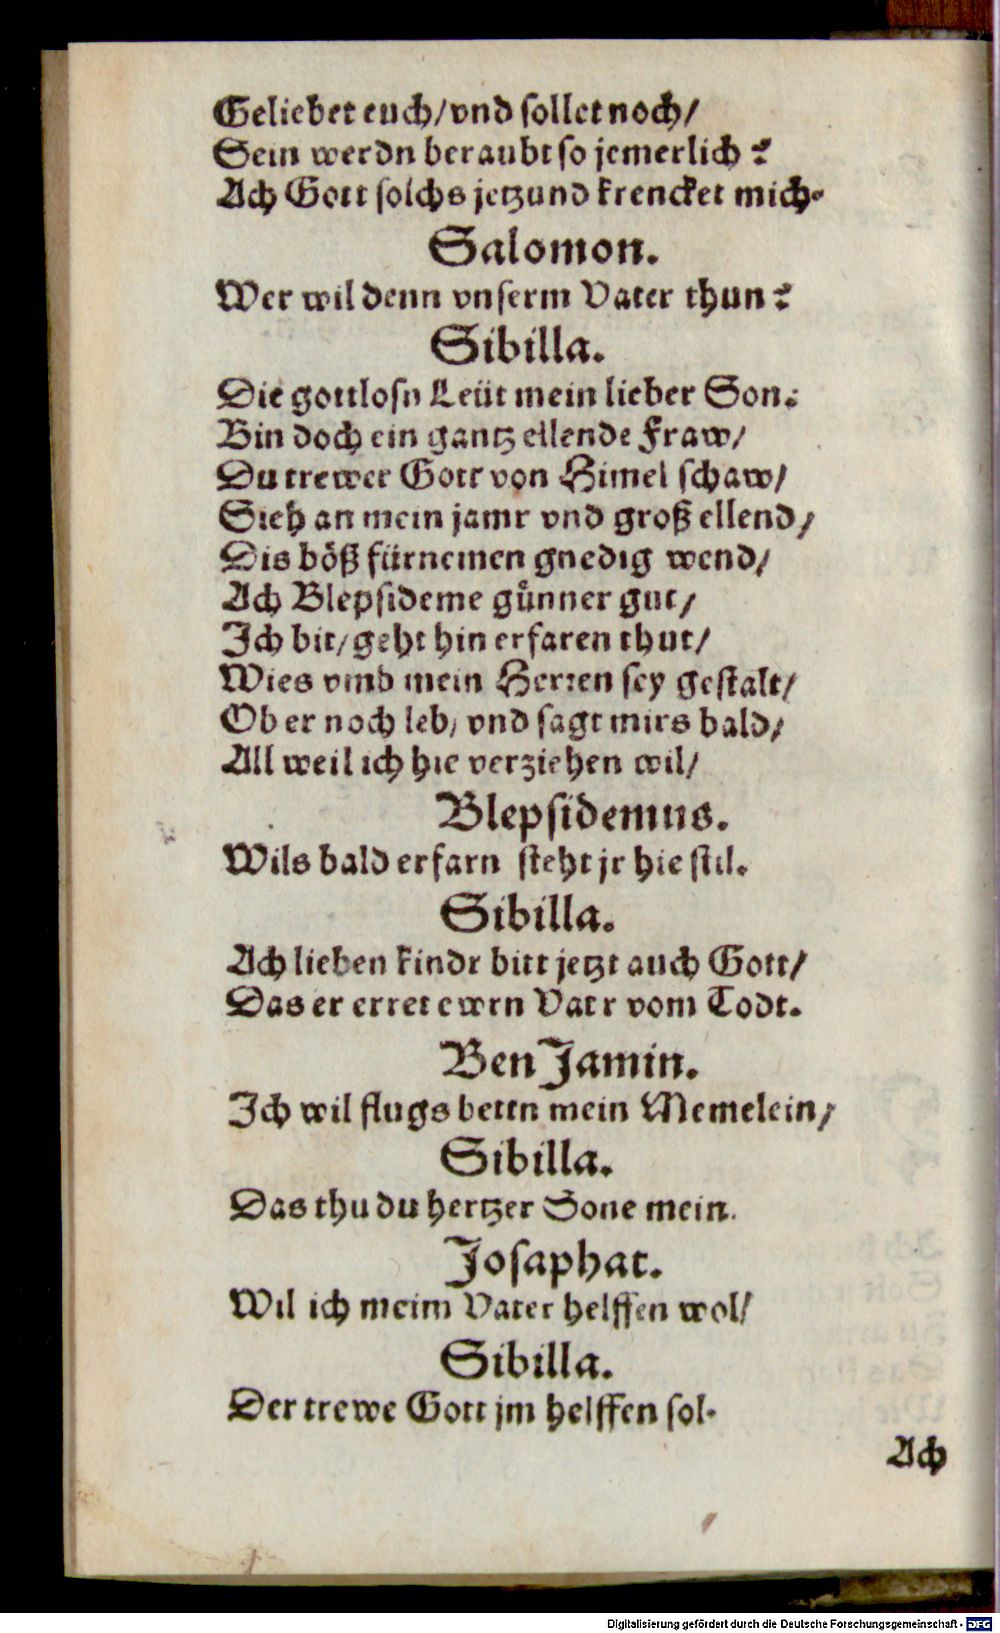 Geliebet euch/vnd sollet noch/
Sein werdn beraubt so jemerlich?
Ach Gott solchs jetzund krencket mich.
Salomon.
Wer wil denn vnserm Vater thun?
Sibilla.
Die gottlosn Leüt mein lieber Son.
Bin doch ein gantz ellende Fraw/
Du trewer Gott von Himel schaw/
Sieh an mein jamr vnd groß ellend/
Dis böß fürnemen gnedig wend/
Ach Blepsideme gůnner gut/
Ich bit/geht hin erfaren thut/
Wies vmb mein Herren sey gestalt/
Ob er noch leb/ vnd sagt mirs bald/
All weil ich hie verziehen wil/
Blepsidemus.
Wils bald erfarn steht jr hie stil.
Sibilla.
Ach lieben kindr bitt jetzt auch Gott/
Das er erret ewrn Vatr vom Todt.
Ben Jamin.
Ich wil flugs bettn mein Memelein/
Sibilla.
Das thu du hertzer Sone mein.
Josaphat.
Wil ich meim Vater helffen wol/
Sibilla.
Der trewe Gott jm helffen sol.
Ach
Digitalisierung gefördert durch die Deutsche Forschungsgemeinschaft - DFG